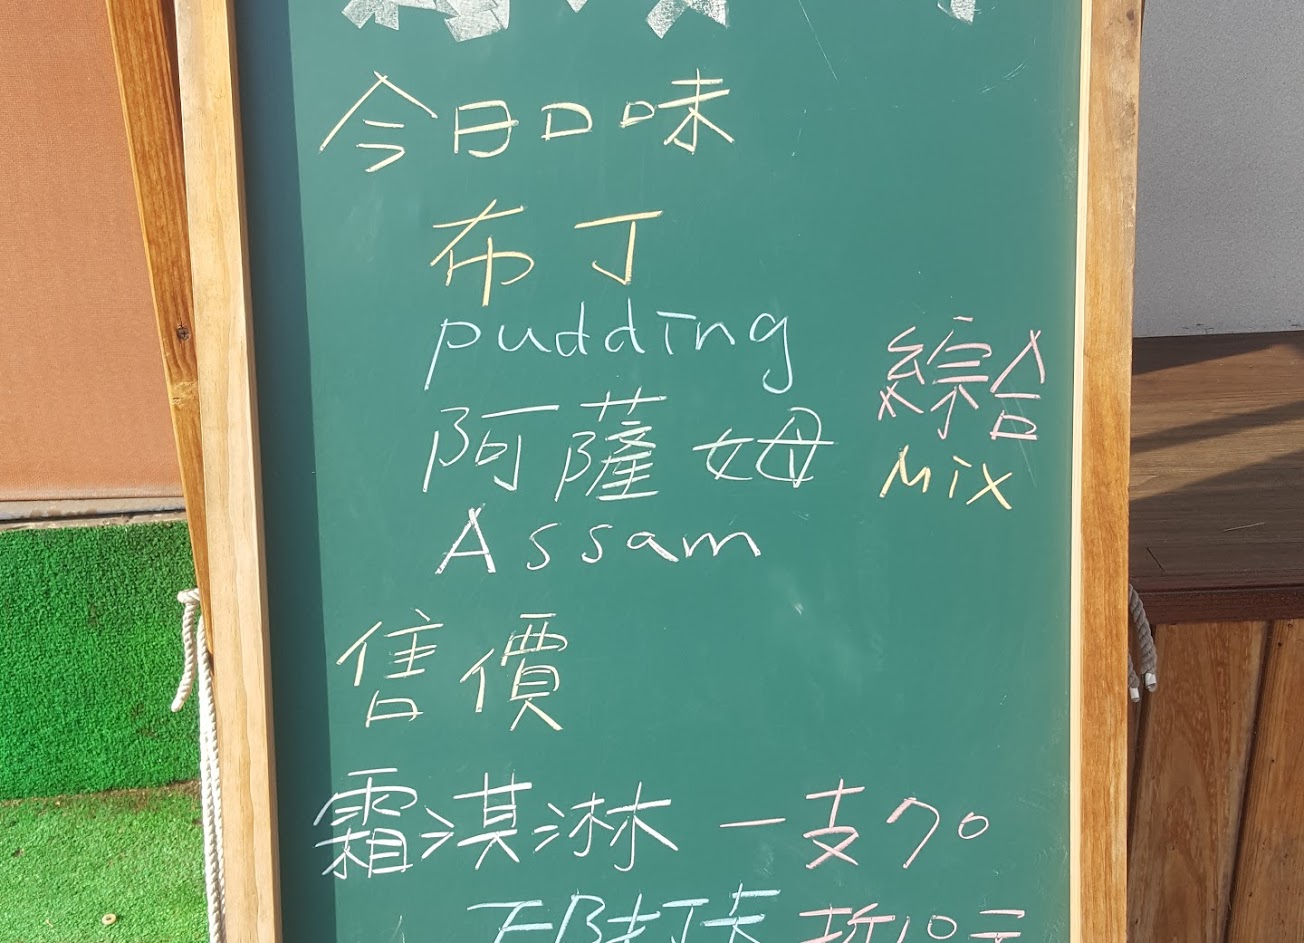 今日口味
布丁
pudding
阿薩姆
Assam
綜合
Mix
售價
霜淇淋 一支70
FB打卡 折10元